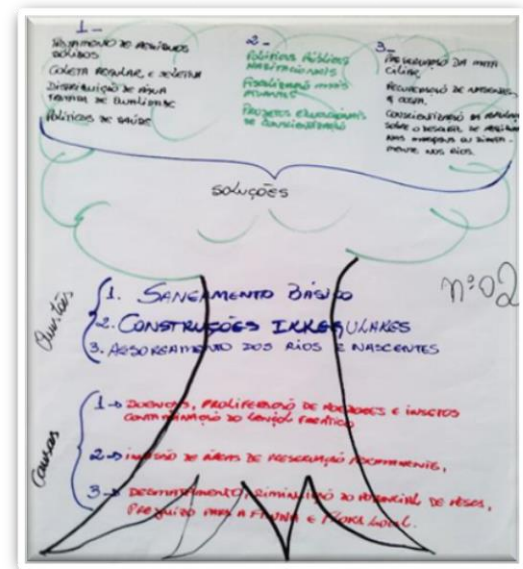 1-
TRATAMENTO DE RESÍDUOS
SÓLIDOS
COLETA REGULAR, E SELETIVA
DISTRIBUIÇÃO DE ÁGUA
TRATADA DE QUALIDADE
POLÍTICAS DE SAÚDE
2-
POLÍTICAS PÚBLICAS
HABITACIONAIS
FISCALIZAÇÃO MAIS
ATUANTES
PROJETOS EDUCACIONAIS
DE CONSCIENTIZAÇÃO
3-
PRESERVAÇÃO DA MATA
CILIAR.
DE NASCENTES,
CONSCIENTIZAÇÃO DA POPULAÇÃO
SOBRE O DE
NAS MARGENS OU DIRETA-
MENTE NOS RIOS.
SOLUÇÕES
nº 02
Questões
1. SANEAMENTO BÁSICO
2. CONSTRUÇÕES IRREGULARES
3. ASSOREAMENTO DOS RIOS E NASCENTES
Causas
1→ DOENÇAS, PROLIFERAÇÃO DE ROEDORES E INSETOS
CONTAMINAÇÃO DO LENÇOL FREÁTICO
2→ INVASÃO DE ÁREAS DE PRESERVAÇÃO PERMANENTE,
3→ DESMATAMENTO, DIMINUIÇÃO DO POTENCIAL DE PEIXES,
PREJUÍZO PARA A FAUNA E FLORA LOCAL.